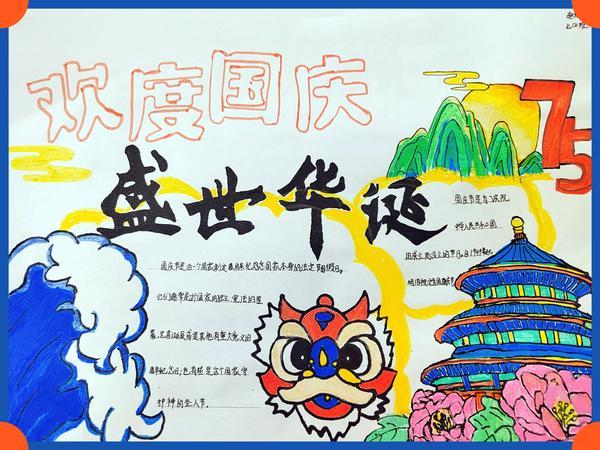 欢度国庆
75
盛世华诞
国庆节是为了庆祝
中华人民共和国
成立而设立的节日
国庆节是由一个国家制定的用来纪念国家本身的法定节假日。
它们通常是这个国家的独立、宪法的签
署、元首诞辰或是其他有重大意义的
周年纪念日；也有些是这个国家守
护神的圣人节。